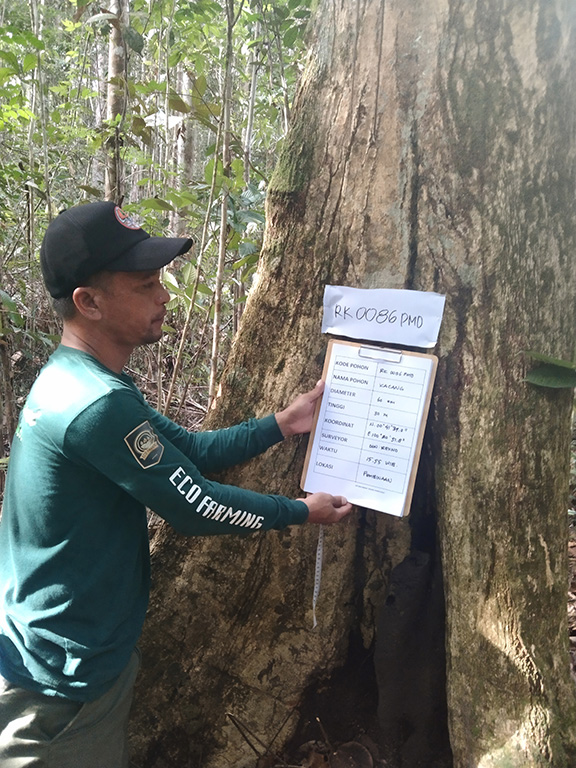 RK 0086 PMD
KODE POHON RK 0086 PMD
NAMA POHON KACANG
DIAMETER 60
TINGGI 30 M
KOORDINAT
SURVEYOR
WAKTU 15.55 WIB
LOKASI
ECO FARMING